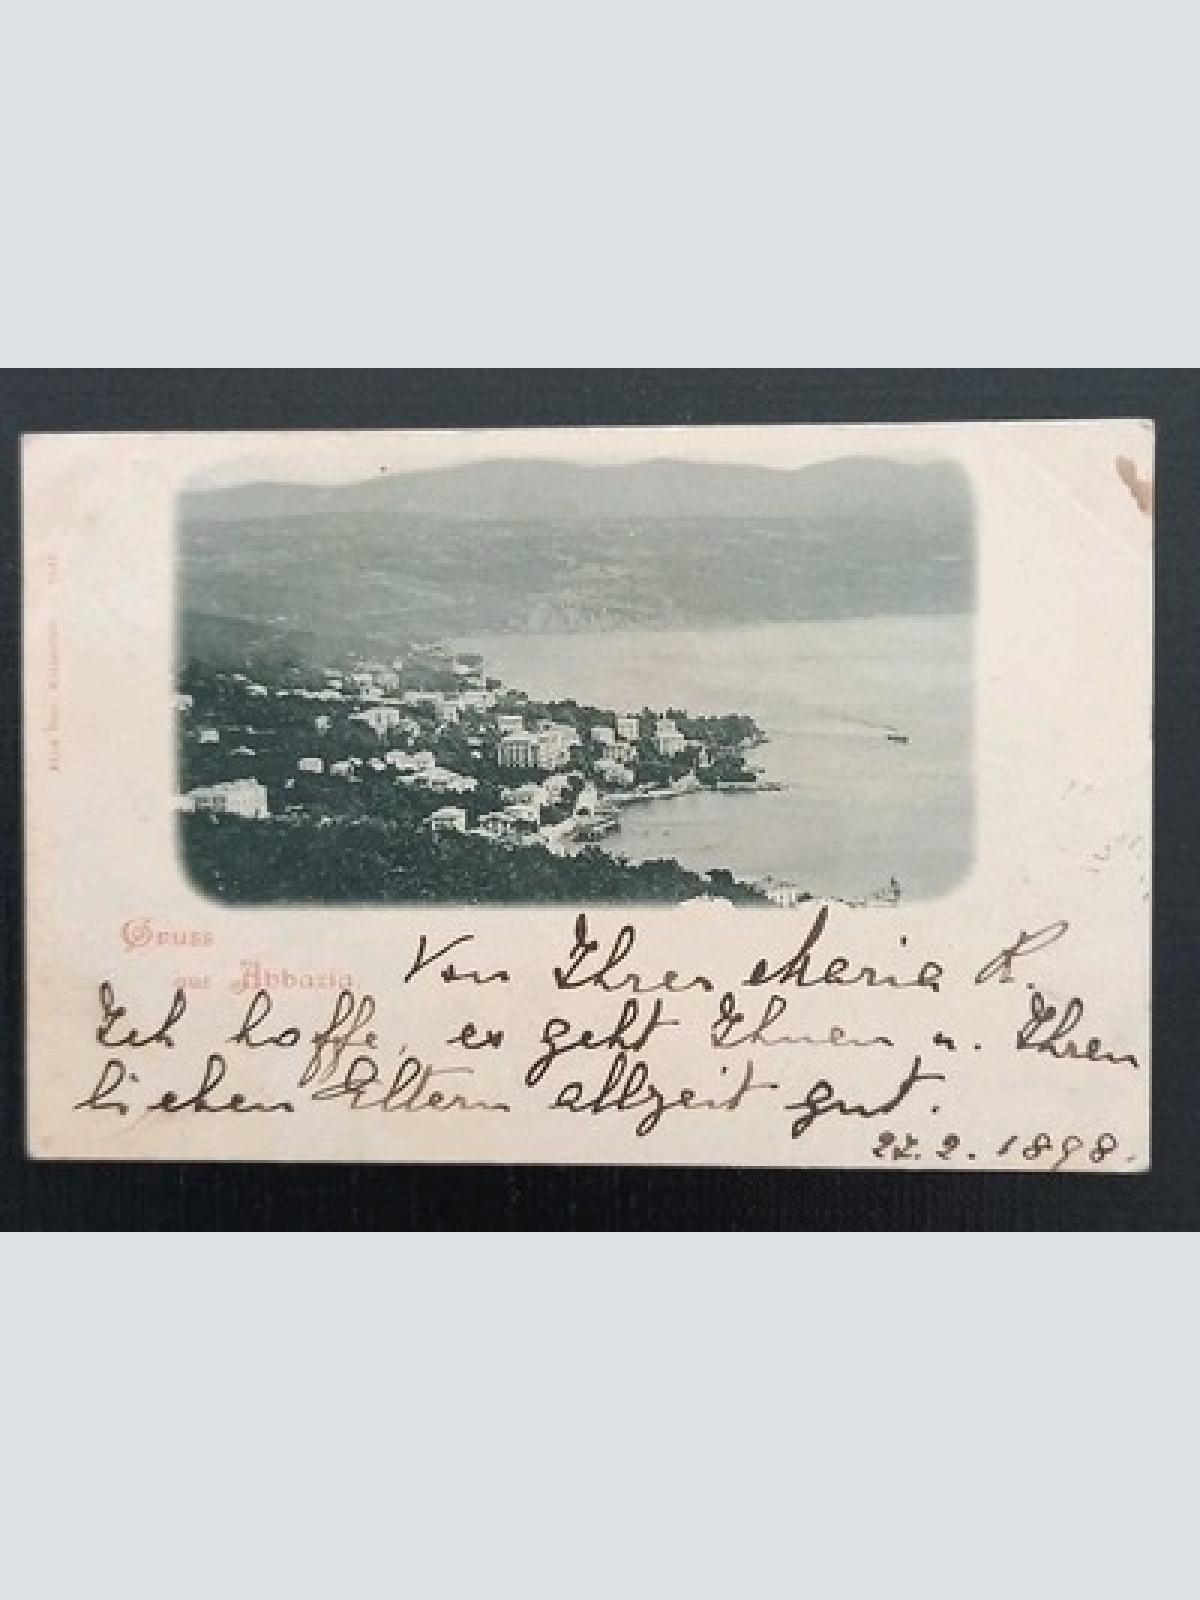 Gruss
aus Abbazia.
Von Ihrer Maria K.
Ich hoffe, es geht Ihnen u. Ihren
lieben Eltern allzeit gut.
2.1898.